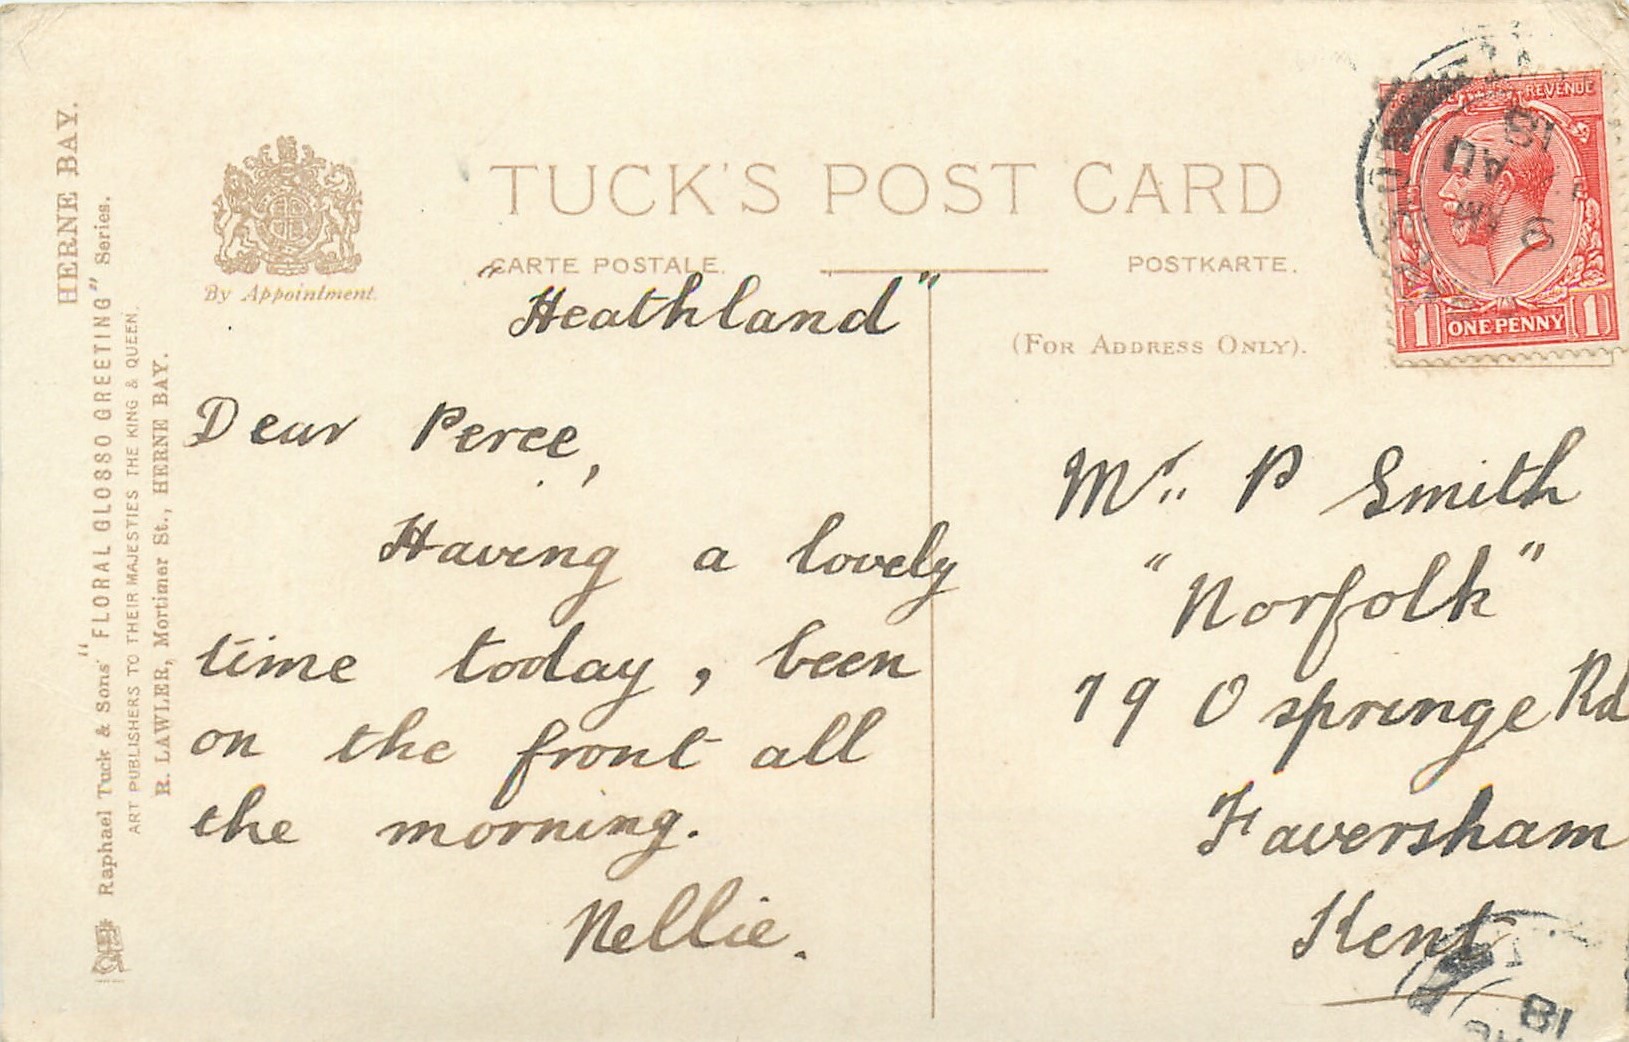 HERNE BAY.
Raphael Tuck & Sons' "FLORAL GLOSSO GREETING" Series.
ART PUBLISHERS TO THEIR MAJESTIES THE KING & QUEEN.
R. LAWLER, Mortimer St., HERNE BAY.
By Appointment.
TUCK'S POST CARD
CARTE POSTALE.
POSTKARTE.
(FOR ADDRESS ONLY).
"Heathland"
Dear Perce,
Having a lovely
time today, been
on the front all
the morning.
Nellie.
REVENUE
1 ONE PENNY 1
AM
AU
18
Mr. P Smith
"Norfolk"
79 Ospringe Rd
Faversham
Kent
18